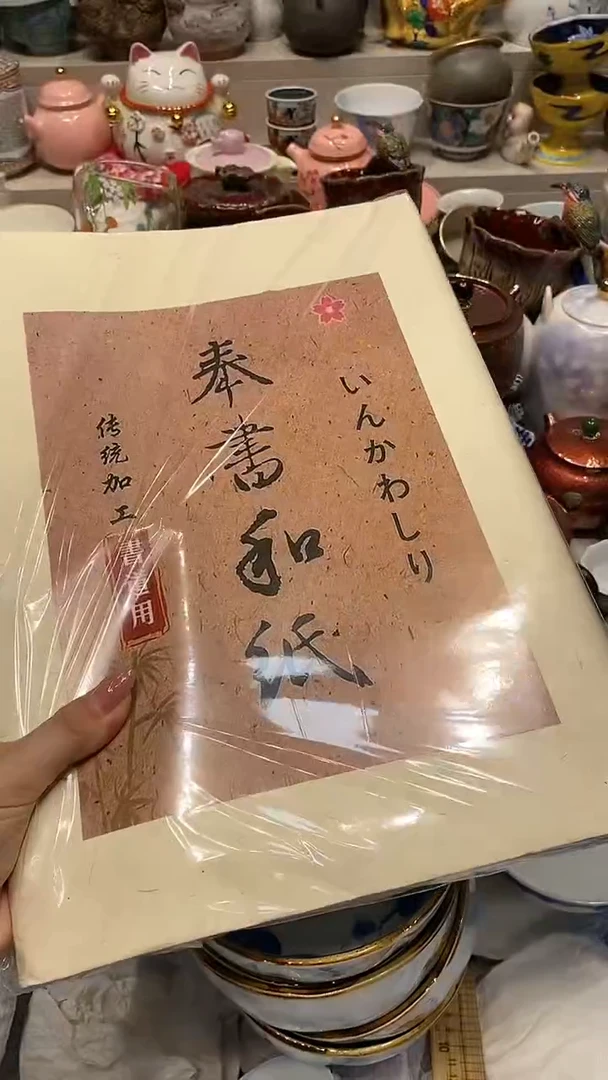 いんかわしり
奉書和紙
传统加工
書道用